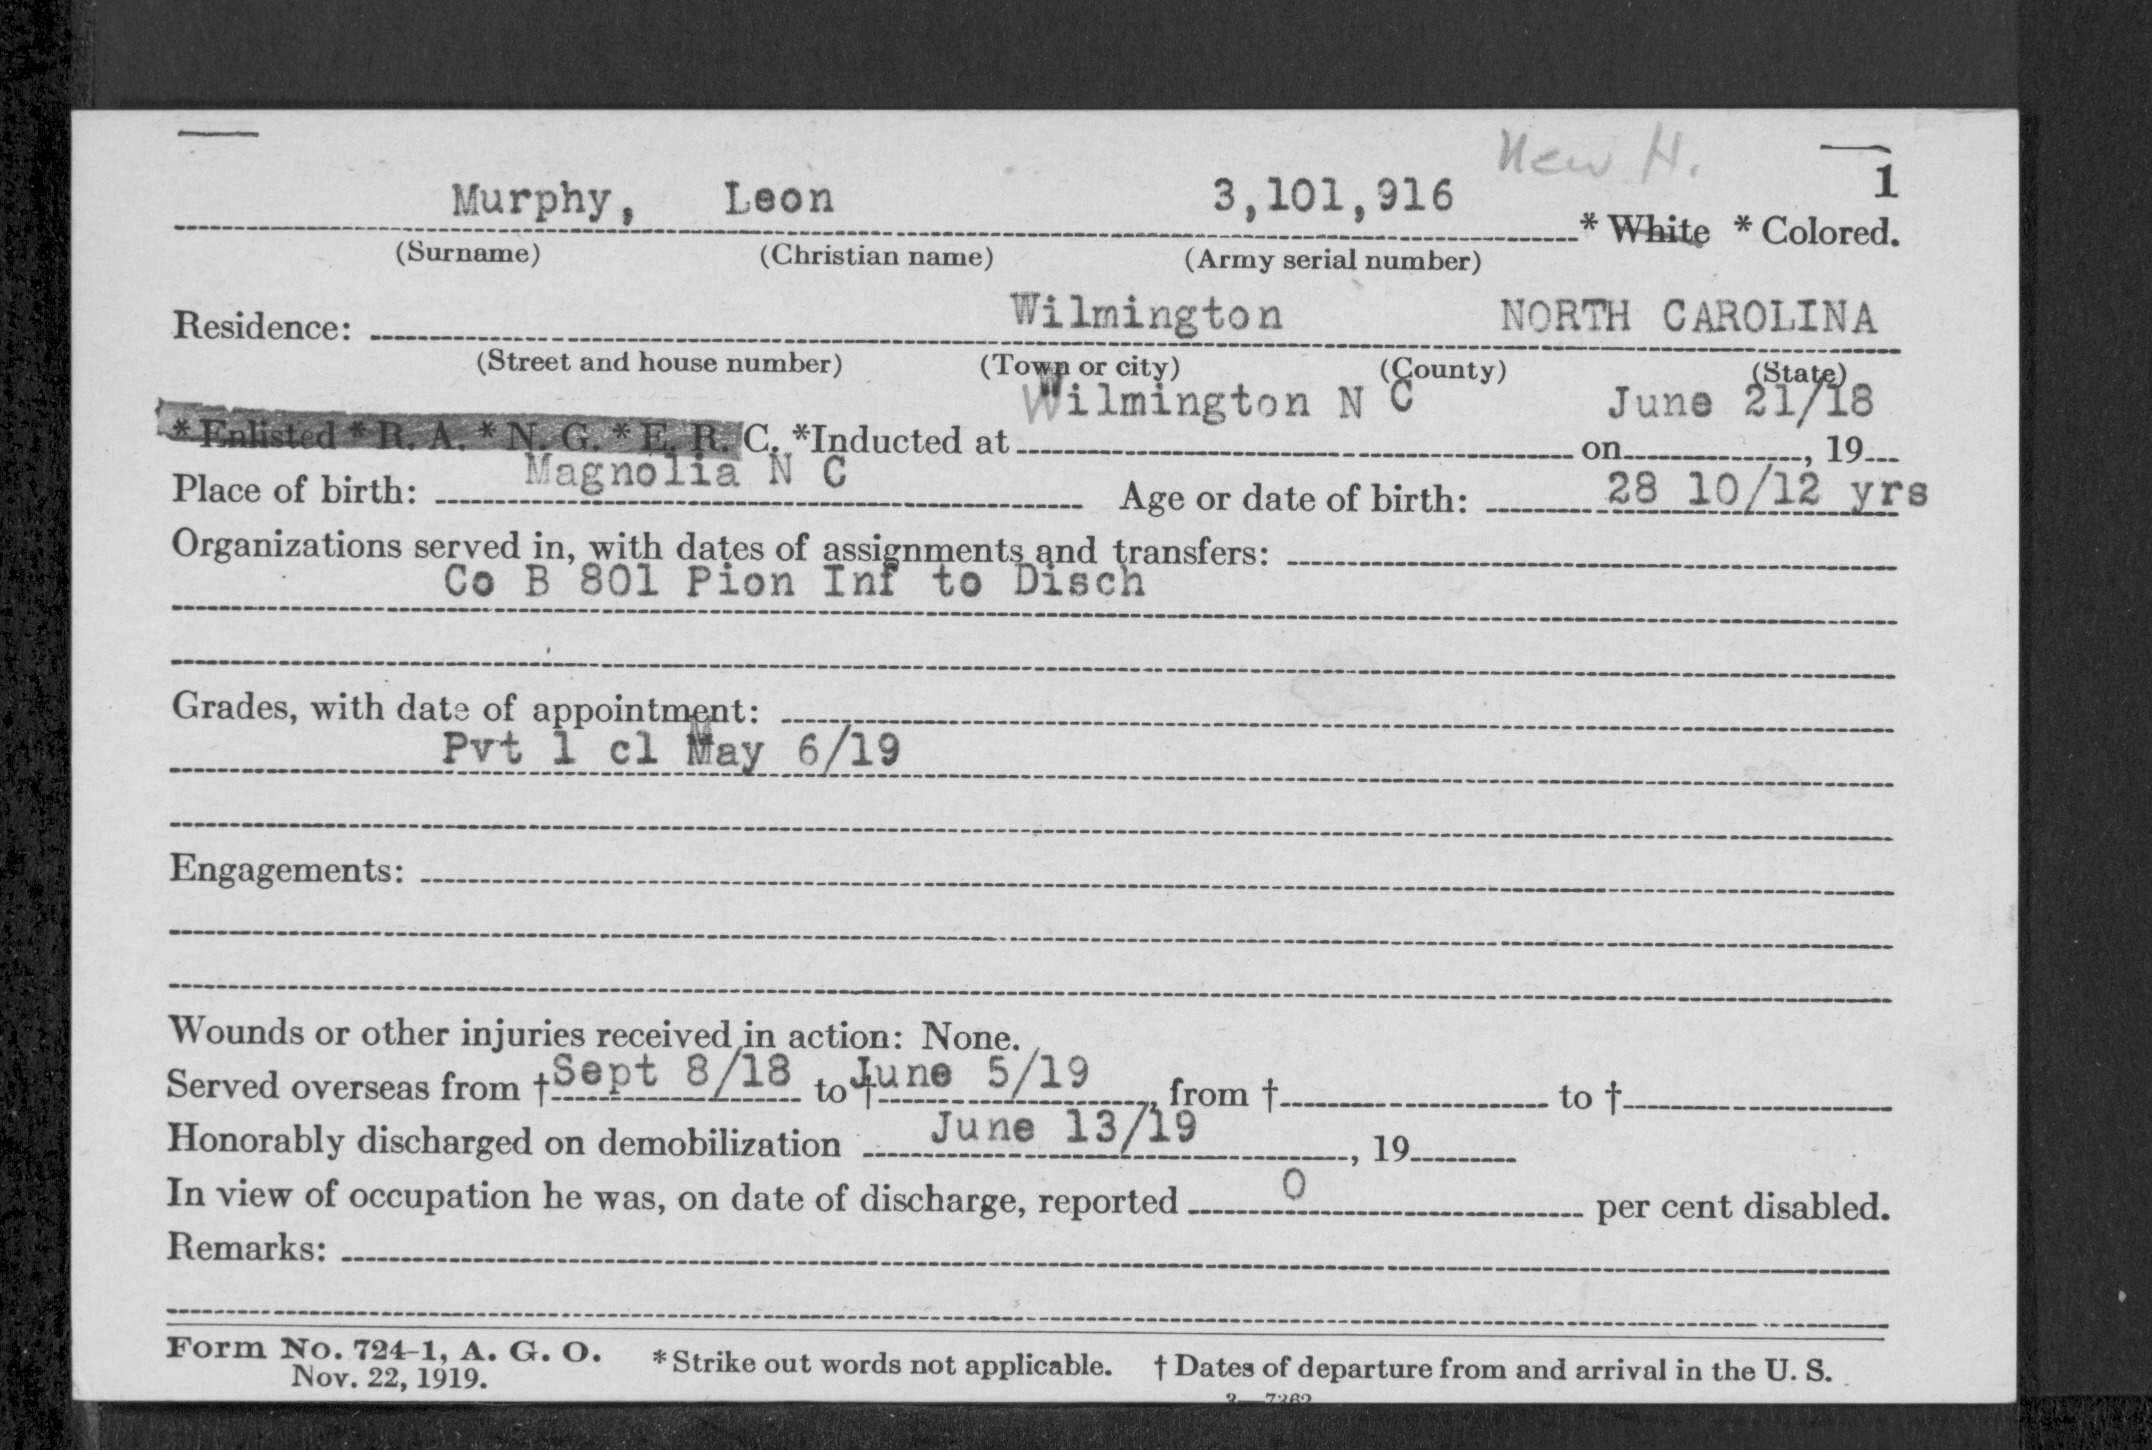 New H.
1
Murphy, Leon 3,101,916 * White * Colored.
(Surname) (Christian name) (Army serial number)
Residence: Wilmington NORTH CAROLINA
(Street and house number) (Town or city) (County) (State)
* Enlisted * R. A. * N. G. * E. R. C. *Inducted at Wilmington N C on June 21/18, 19
Place of birth: Magnolia N C Age or date of birth: 28 10/12 yrs
Organizations served in, with dates of assignments and transfers:
Co B 801 Pion Inf to Disch
Grades, with date of appointment:
Pvt 1 cl May 6/19
Engagements:
Wounds or other injuries received in action: None.
Served overseas from † Sept 8/18 to † June 5/19, from † to †
Honorably discharged on demobilization June 13/19, 19
In view of occupation he was, on date of discharge, reported 0 per cent disabled.
Remarks:
Form No. 724-1, A. G. O. * Strike out words not applicable. † Dates of departure from and arrival in the U. S.
Nov. 22, 1919.
3—7362